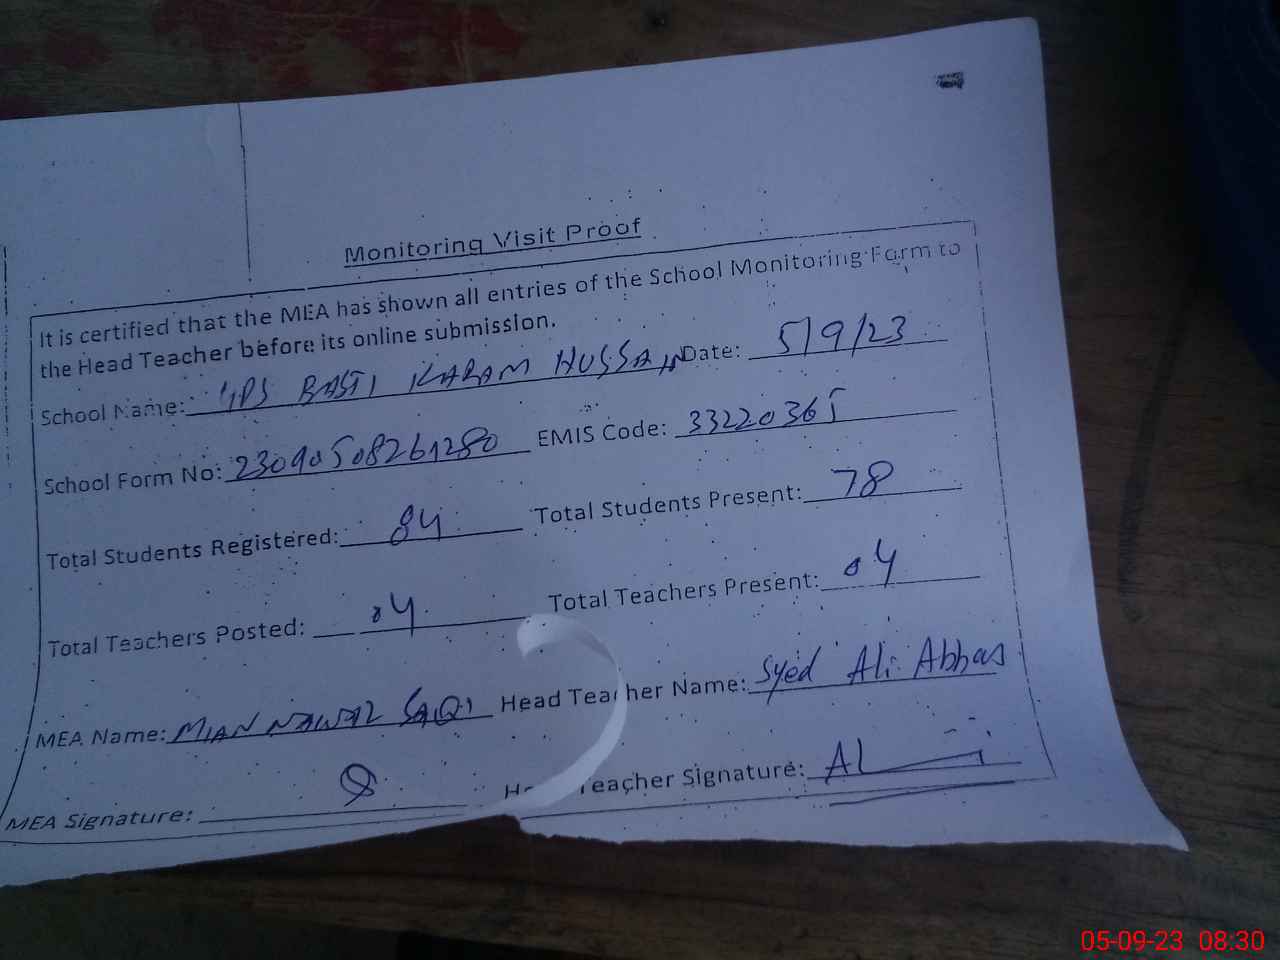 Monitoring Visit Proof
It is certified that the MEA has shown all entries of the School Monitoring Form to
the Head Teacher before its online submission.
School Name: GPS BASTI KARAM HUSSAIN Date: 5/9/23
School Form No: 23090508261280 EMIS Code: 33220365
Total Students Registered: 84 Total Students Present: 78
Total Teachers Posted: 04 Total Teachers Present: 04
MEA Name: MIAN NAWAZ SAQI Head Teacher Name: Syed Ali Abbas
MEA Signature: Teacher Signature:
05-09-23 08:30